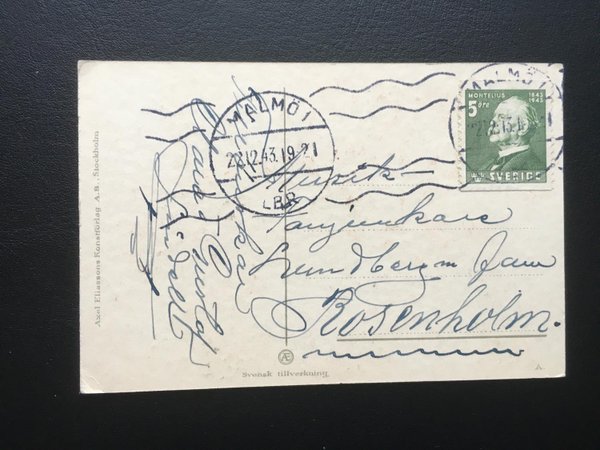 Axel Eliassons Konstförlag A.B. Stockholm
MALMÖ 1
22.12.43.19-21
LBR
MALMÖ 1
MONTELIUS 1843 1943
5 öre
SVERIGE
Musik-
Fanjunkare
Lundberg m fam
Rosenholm.
Gustaf
Æ
Svensk tillverkning
A